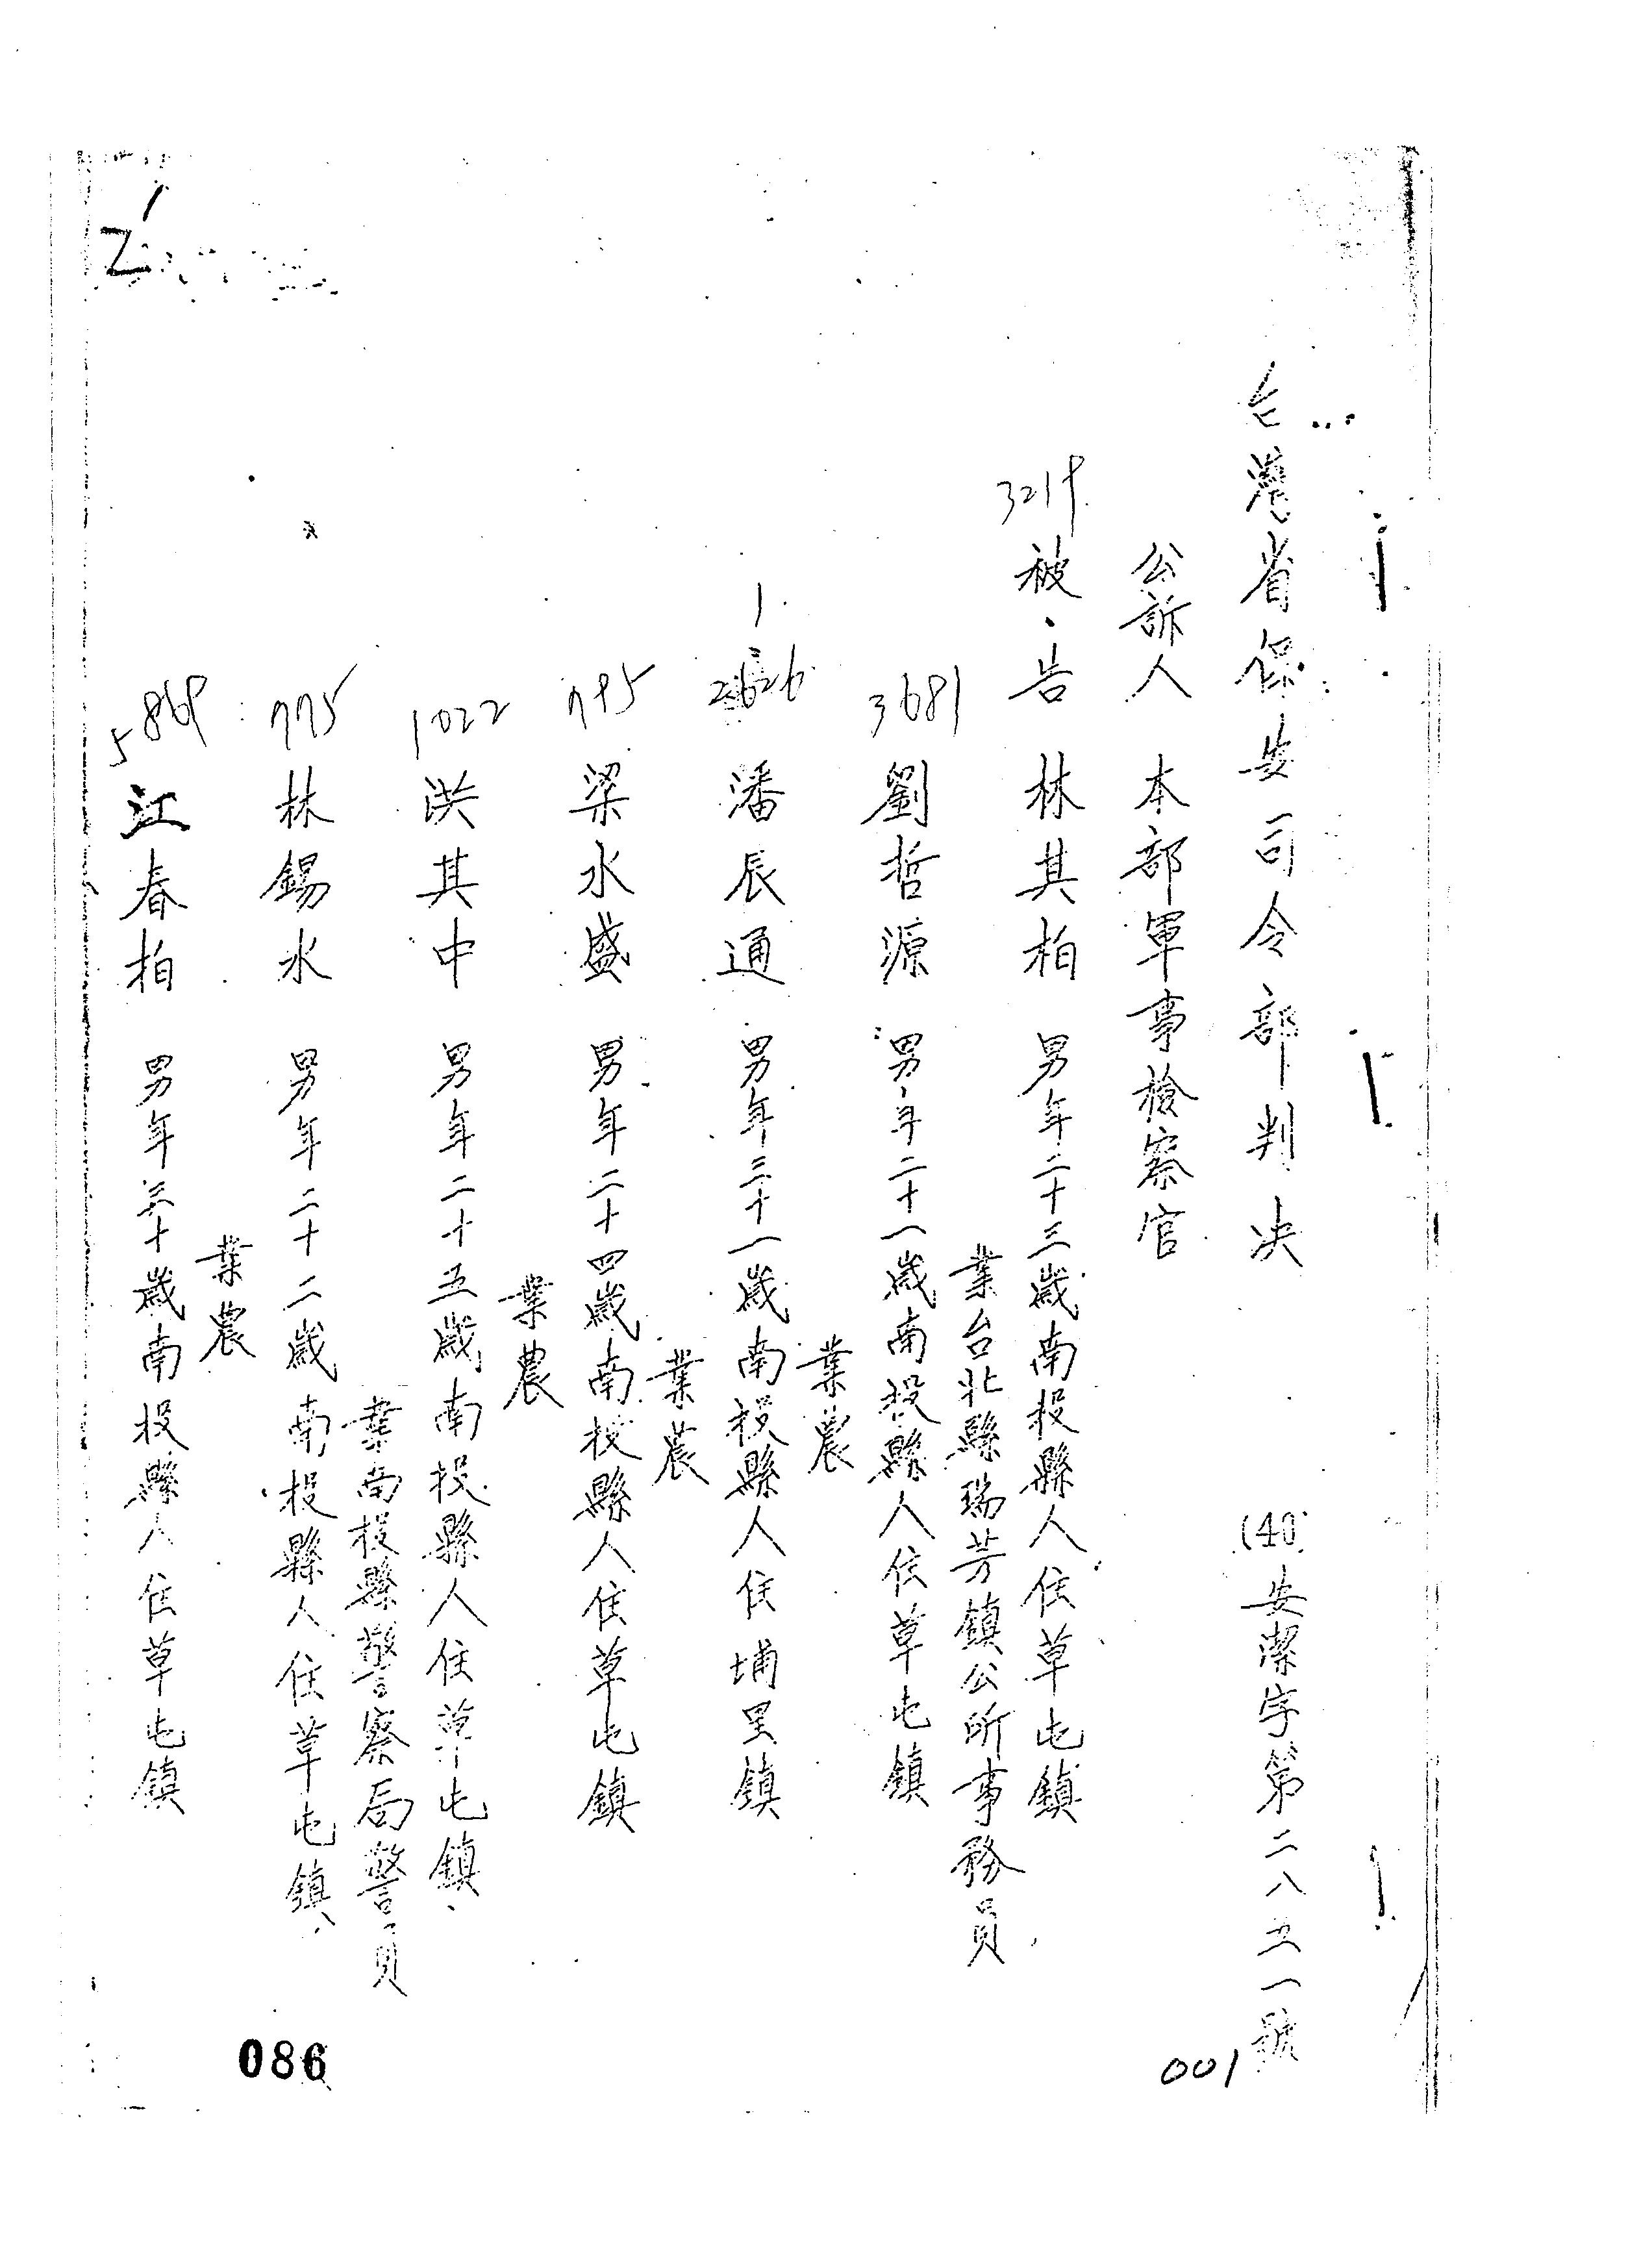 台灣省保安司令部判决 (40)安潔字第二八五一號
公訴人 本部軍事檢察官
3219
被告 林其柏 男年二十三歲南投縣人住草屯鎮
業台北縣瑞芳鎮公所事務員
3681
劉哲源 男年二十一歲南投縣人住草屯鎮
業農
2626
潘辰通 男年三十一歲南投縣人住埔里鎮
業農
795
梁水盛 男年二十四歲南投縣人住草屯鎮
業農
1022
洪其中 男年二十五歲南投縣人住草屯鎮
業南投縣警察局警員
775
林錫水 男年二十二歲南投縣人住草屯鎮
業農
5869
江春柏 男年三十歲南投縣人住草屯鎮
001
086